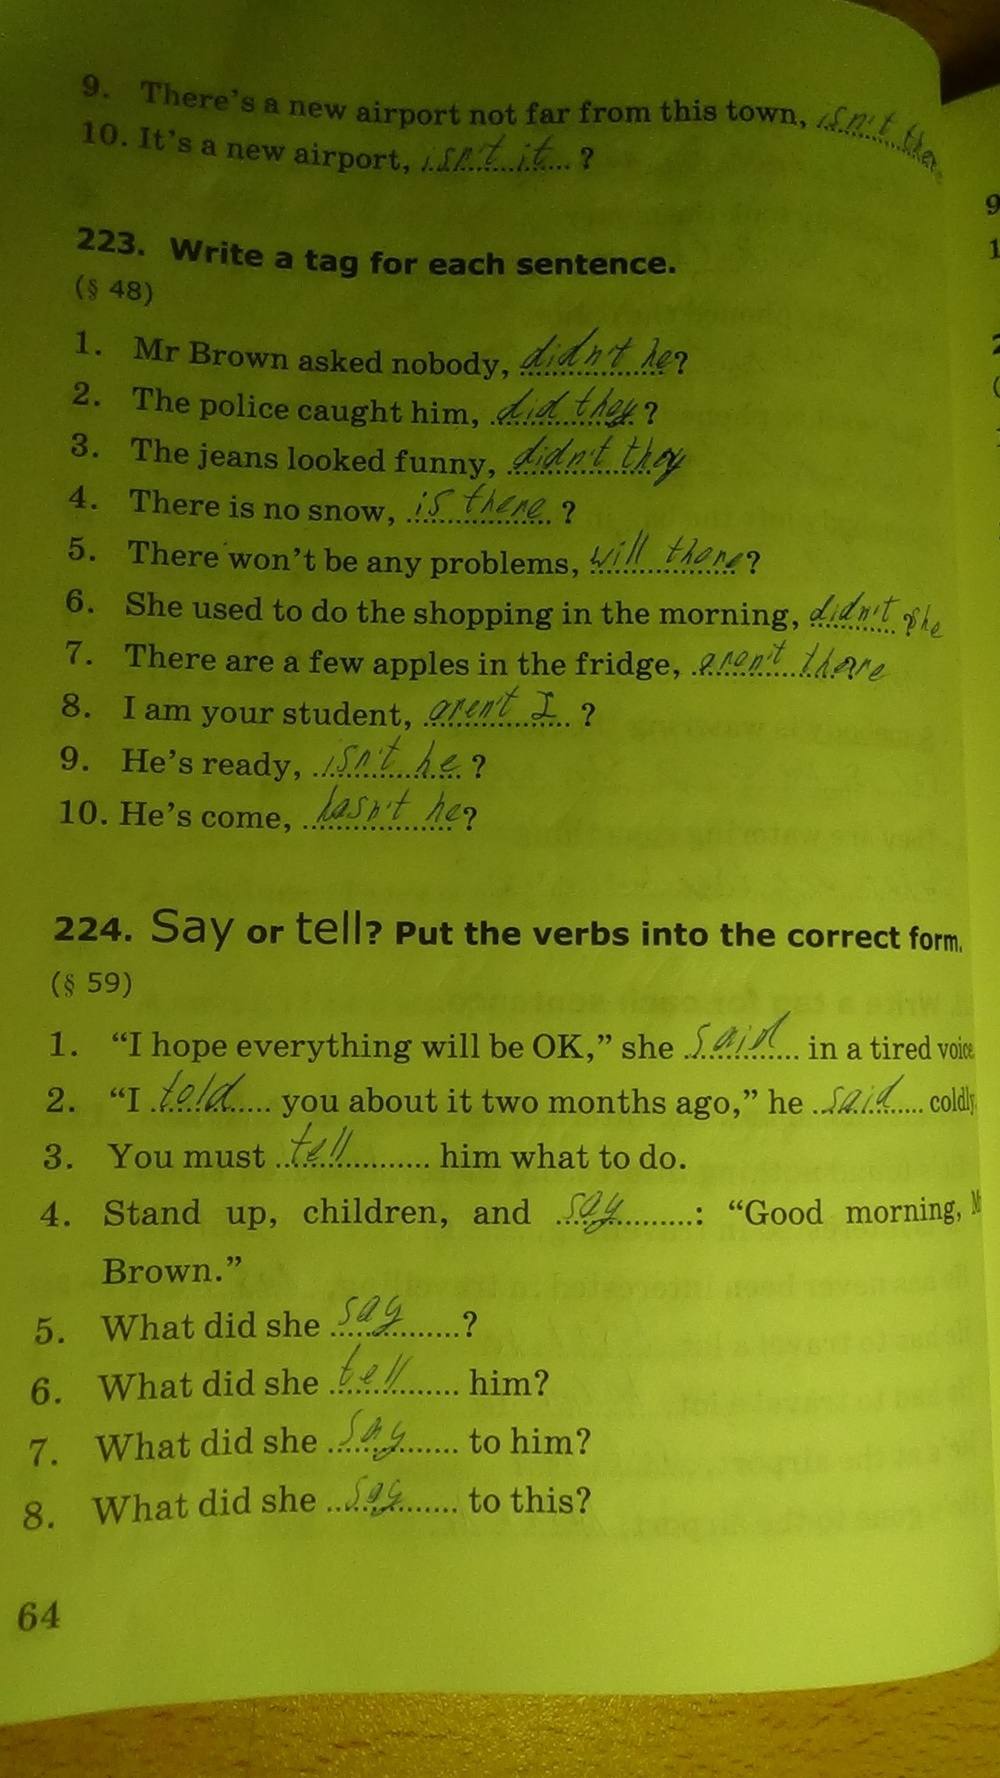 9. There's a new airport not far from this town, isn't the
10. It's a new airport, isn't it ?
223. Write a tag for each sentence.
(§ 48)
1. Mr Brown asked nobody, didn't he?
2. The police caught him, did they?
3. The jeans looked funny, didn't they
4. There is no snow, is there ?
5. There won't be any problems, will there?
6. She used to do the shopping in the morning, didn't she
7. There are a few apples in the fridge, aren't there
8. I am your student, aren't I ?
9. He's ready, isn't he ?
10. He's come, hasn't he?
224. Say or tell? Put the verbs into the correct form.
(§ 59)
1. “I hope everything will be OK,” she said in a tired voice
2. “I told you about it two months ago,” he said coldly.
3. You must tell him what to do.
4. Stand up, children, and say: “Good morning, M
Brown.”
5. What did she say?
6. What did she tell him?
7. What did she say to him?
8. What did she say to this?
64
9
1